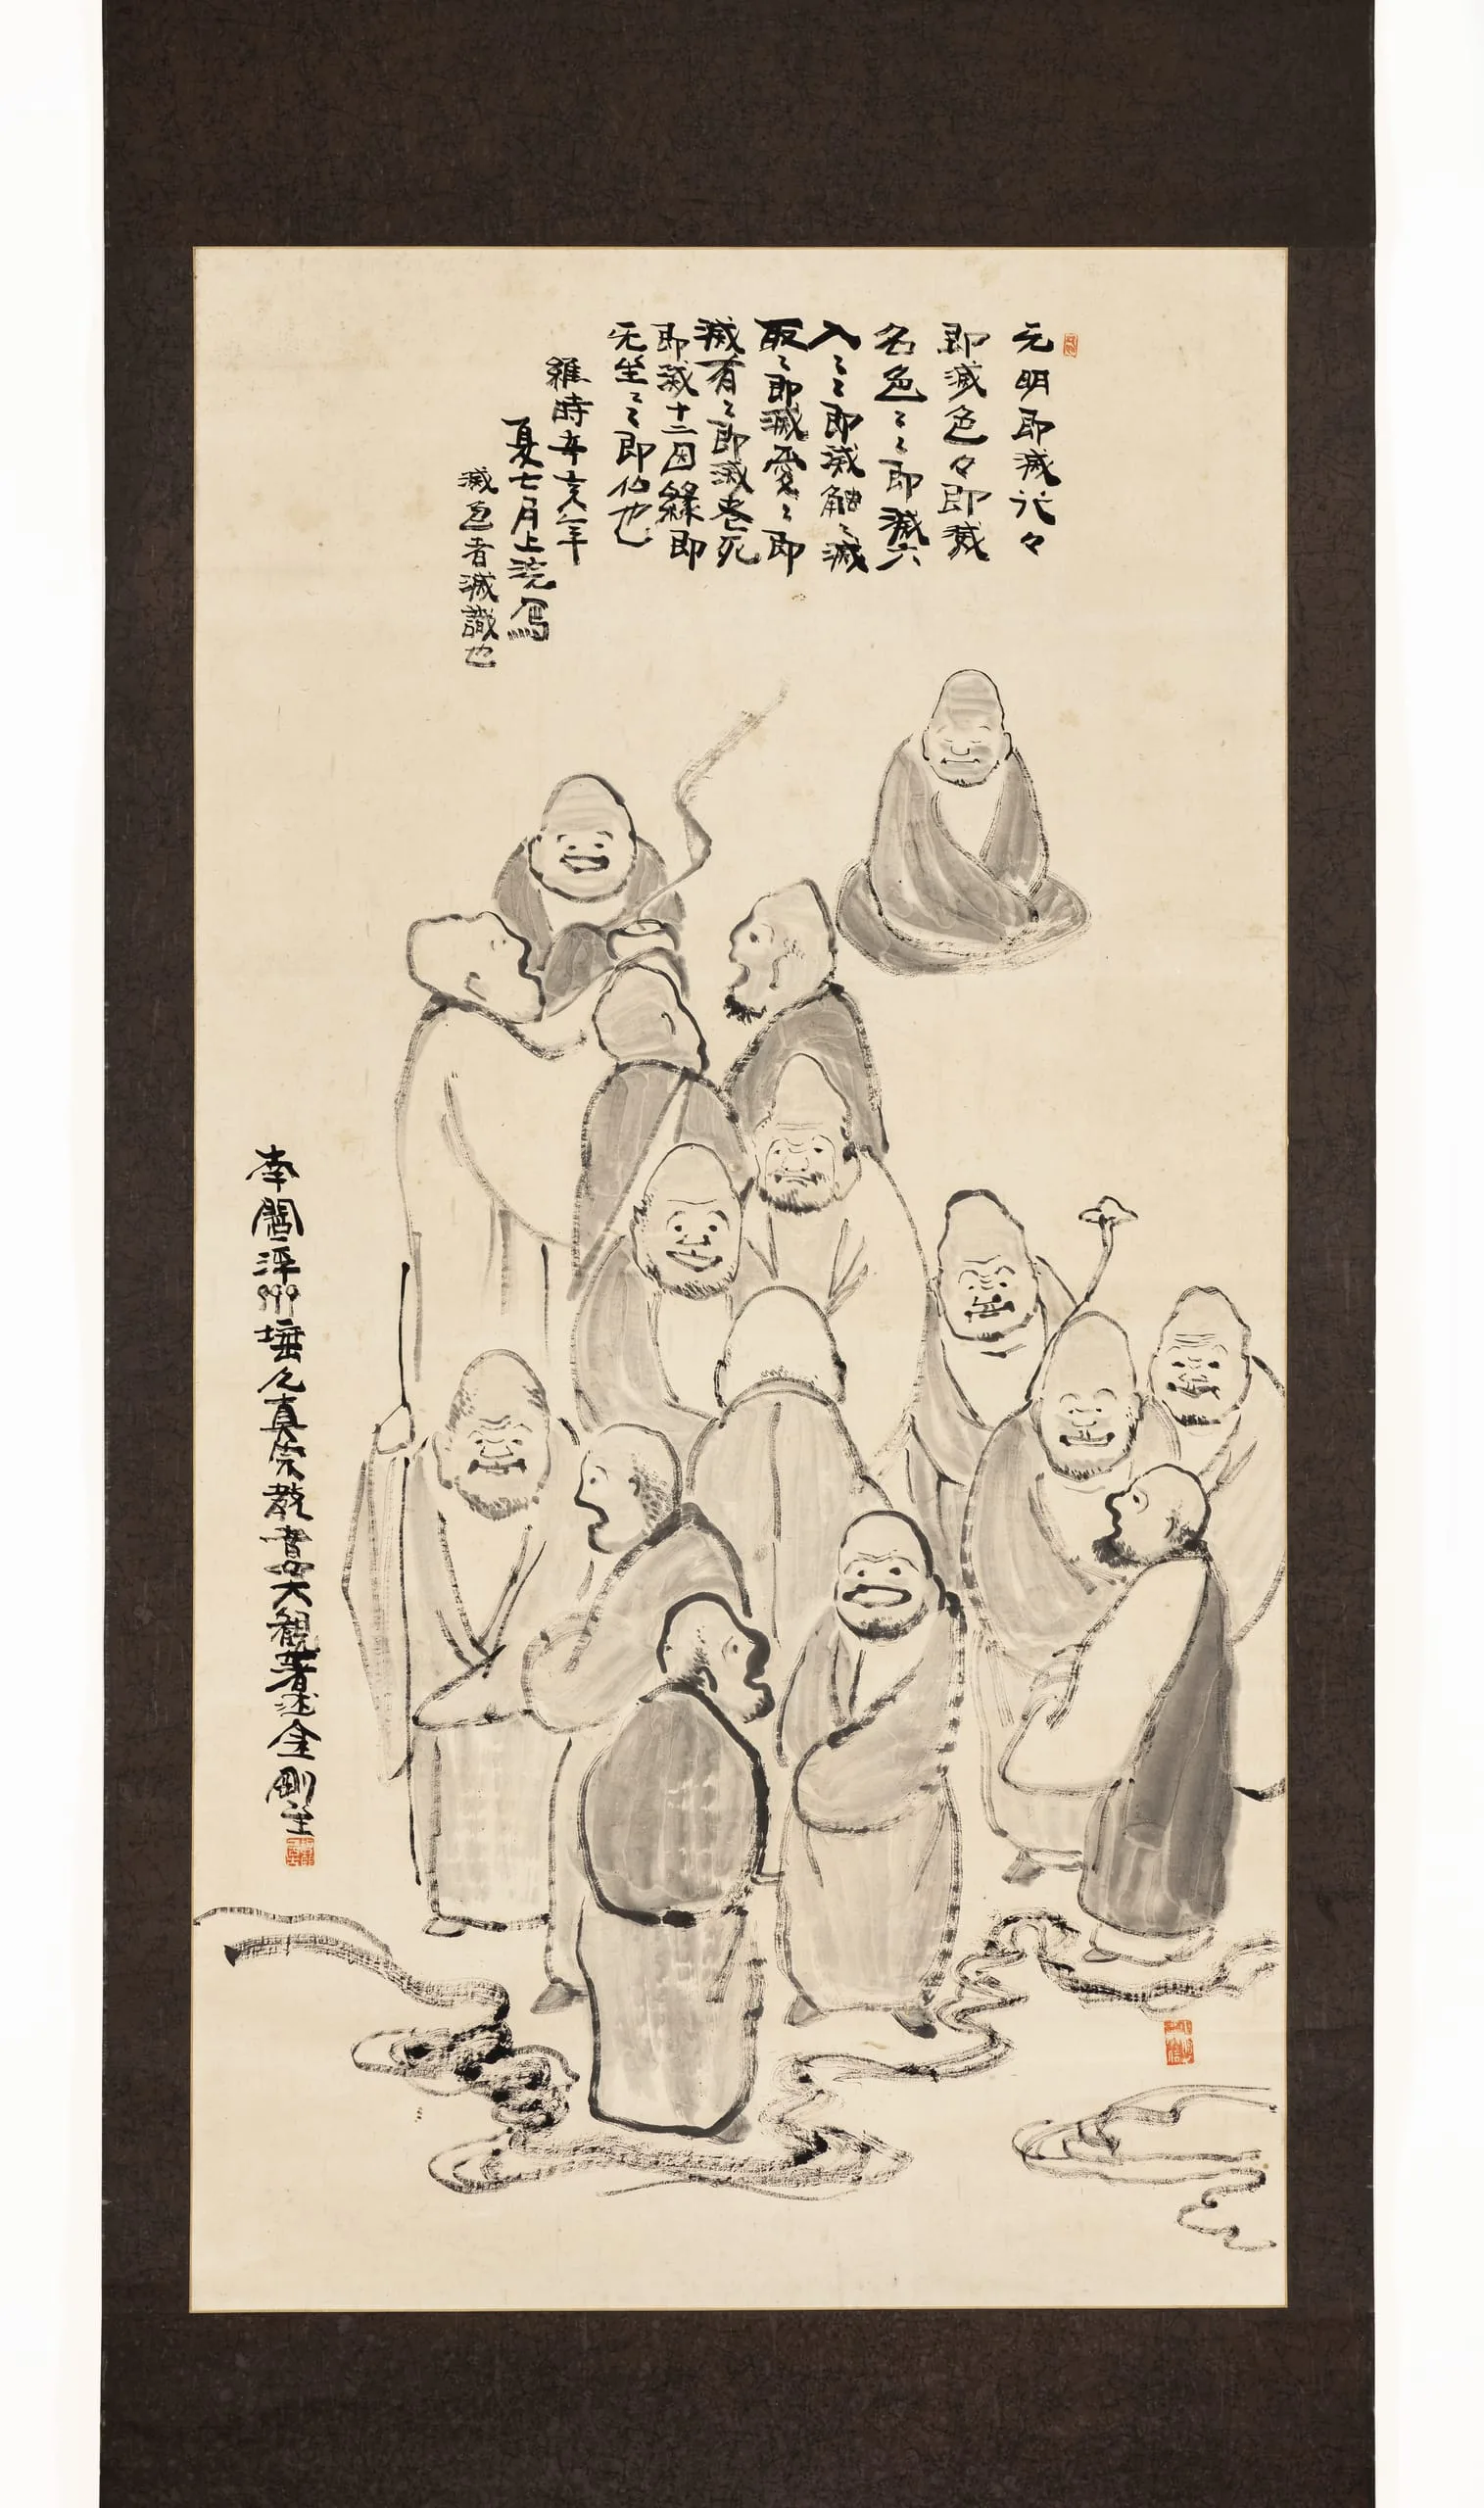 无明即滅行々
即滅色々即滅
名色々々即滅六
入々々即滅触々滅
取々即滅愛々即
滅有々即滅老死
即滅十二因縁即
无生々即仏也
維時辛亥年
夏七月上浣写
滅色者滅識也
南閻浮州
真宗教
大観著述金剛